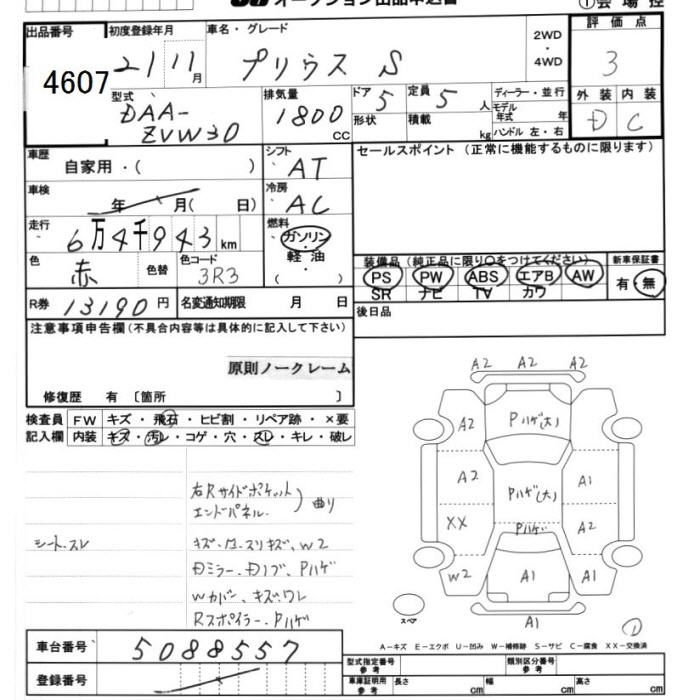 オークション出品申込書
①会場控
出品番号
4607
初度登録年月
21 11月
車名・グレード
プリウス S
2WD
・
4WD
評価点
3
外装 内装
D C
型式
DAA-
ZVW30
排気量
1800 CC
ドア 5
形状
定員 5 人
積載 kg
ディーラー・並行
モデル
年式 年
ハンドル 左・右
車歴
自家用・( )
シフト
AT
セールスポイント (正常に機能するものに限ります)
車検
年 月( 日)
冷房
AC
走行
6万4千943km
燃料
ガソリン
・
軽油
( )
色
赤
色替
色コード
3R3
装備品 (純正品に限り○をつけてください)
PS PW ABS エアB AW
SR ナビ TV カワ
新車保証書
有・無
R券 13190円
名変通知期限 月 日
後日品
注意事項申告欄(不具合内容等は具体的に記入して下さい)
原則ノークレーム
修復歴 有 〔箇所 〕
検査員 FW キズ・飛石・ヒビ割・リペア跡・×要
記入欄 内装 キズ・汚レ・コゲ・穴・スレ・キレ・破レ
右Rサイドポケット
エンドパネル. 曲り
シート.スレ
W2
Dミラー・Dノブ、Pハゲ
Wカバー、キズ・ワレ
Rスポイラー・Pハゲ
A2 A2 A2
A2 Pハゲ(大)
A2 Pハゲ(大) A1
XX Pハゲ A2
W2 A1 A1
A1
スペア
A-キズ E-エクボ U-凹み W-補修跡 S-サビ C-腐食 XX-交換済
車台番号 5088557
登録番号
型式指定番号
参考
類別区分番号
参考
車庫証明用
参考
長さ cm 幅 cm 高さ cm